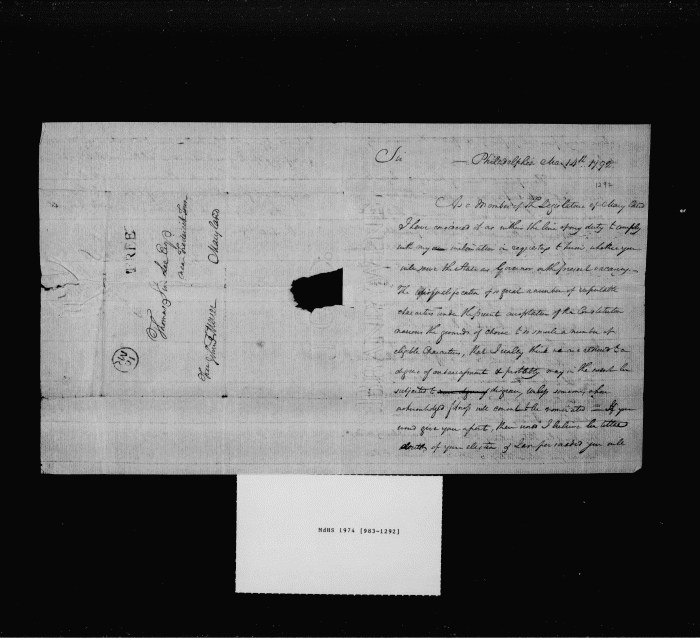 FREE
Thomas Sim Lee Esqr
near Frederick Town
Maryland
Sir
— Philadelphia Mar 14th 179
1292
As a Member of the Legislature of Maryland
I have considered it as within the line of my duty to comply
with my own inclination in requesting to know, whether you
will serve the State as Governor on the present vacancy —
The disqualification of so great a number of respectable
characters under the present acceptation of the Constitution
narrows the grounds of choice to so small a number of
eligible Characters, that I really think we are reduced to a
degree of embarrassment & probably may in the event be
subjected to disgrace, unless someone, of
acknowledged fitness will consent to be nominated — If you
would give your assent, there would I believe be little
doubt of your election if I am for you will
MdHS 1974 [903-1292]